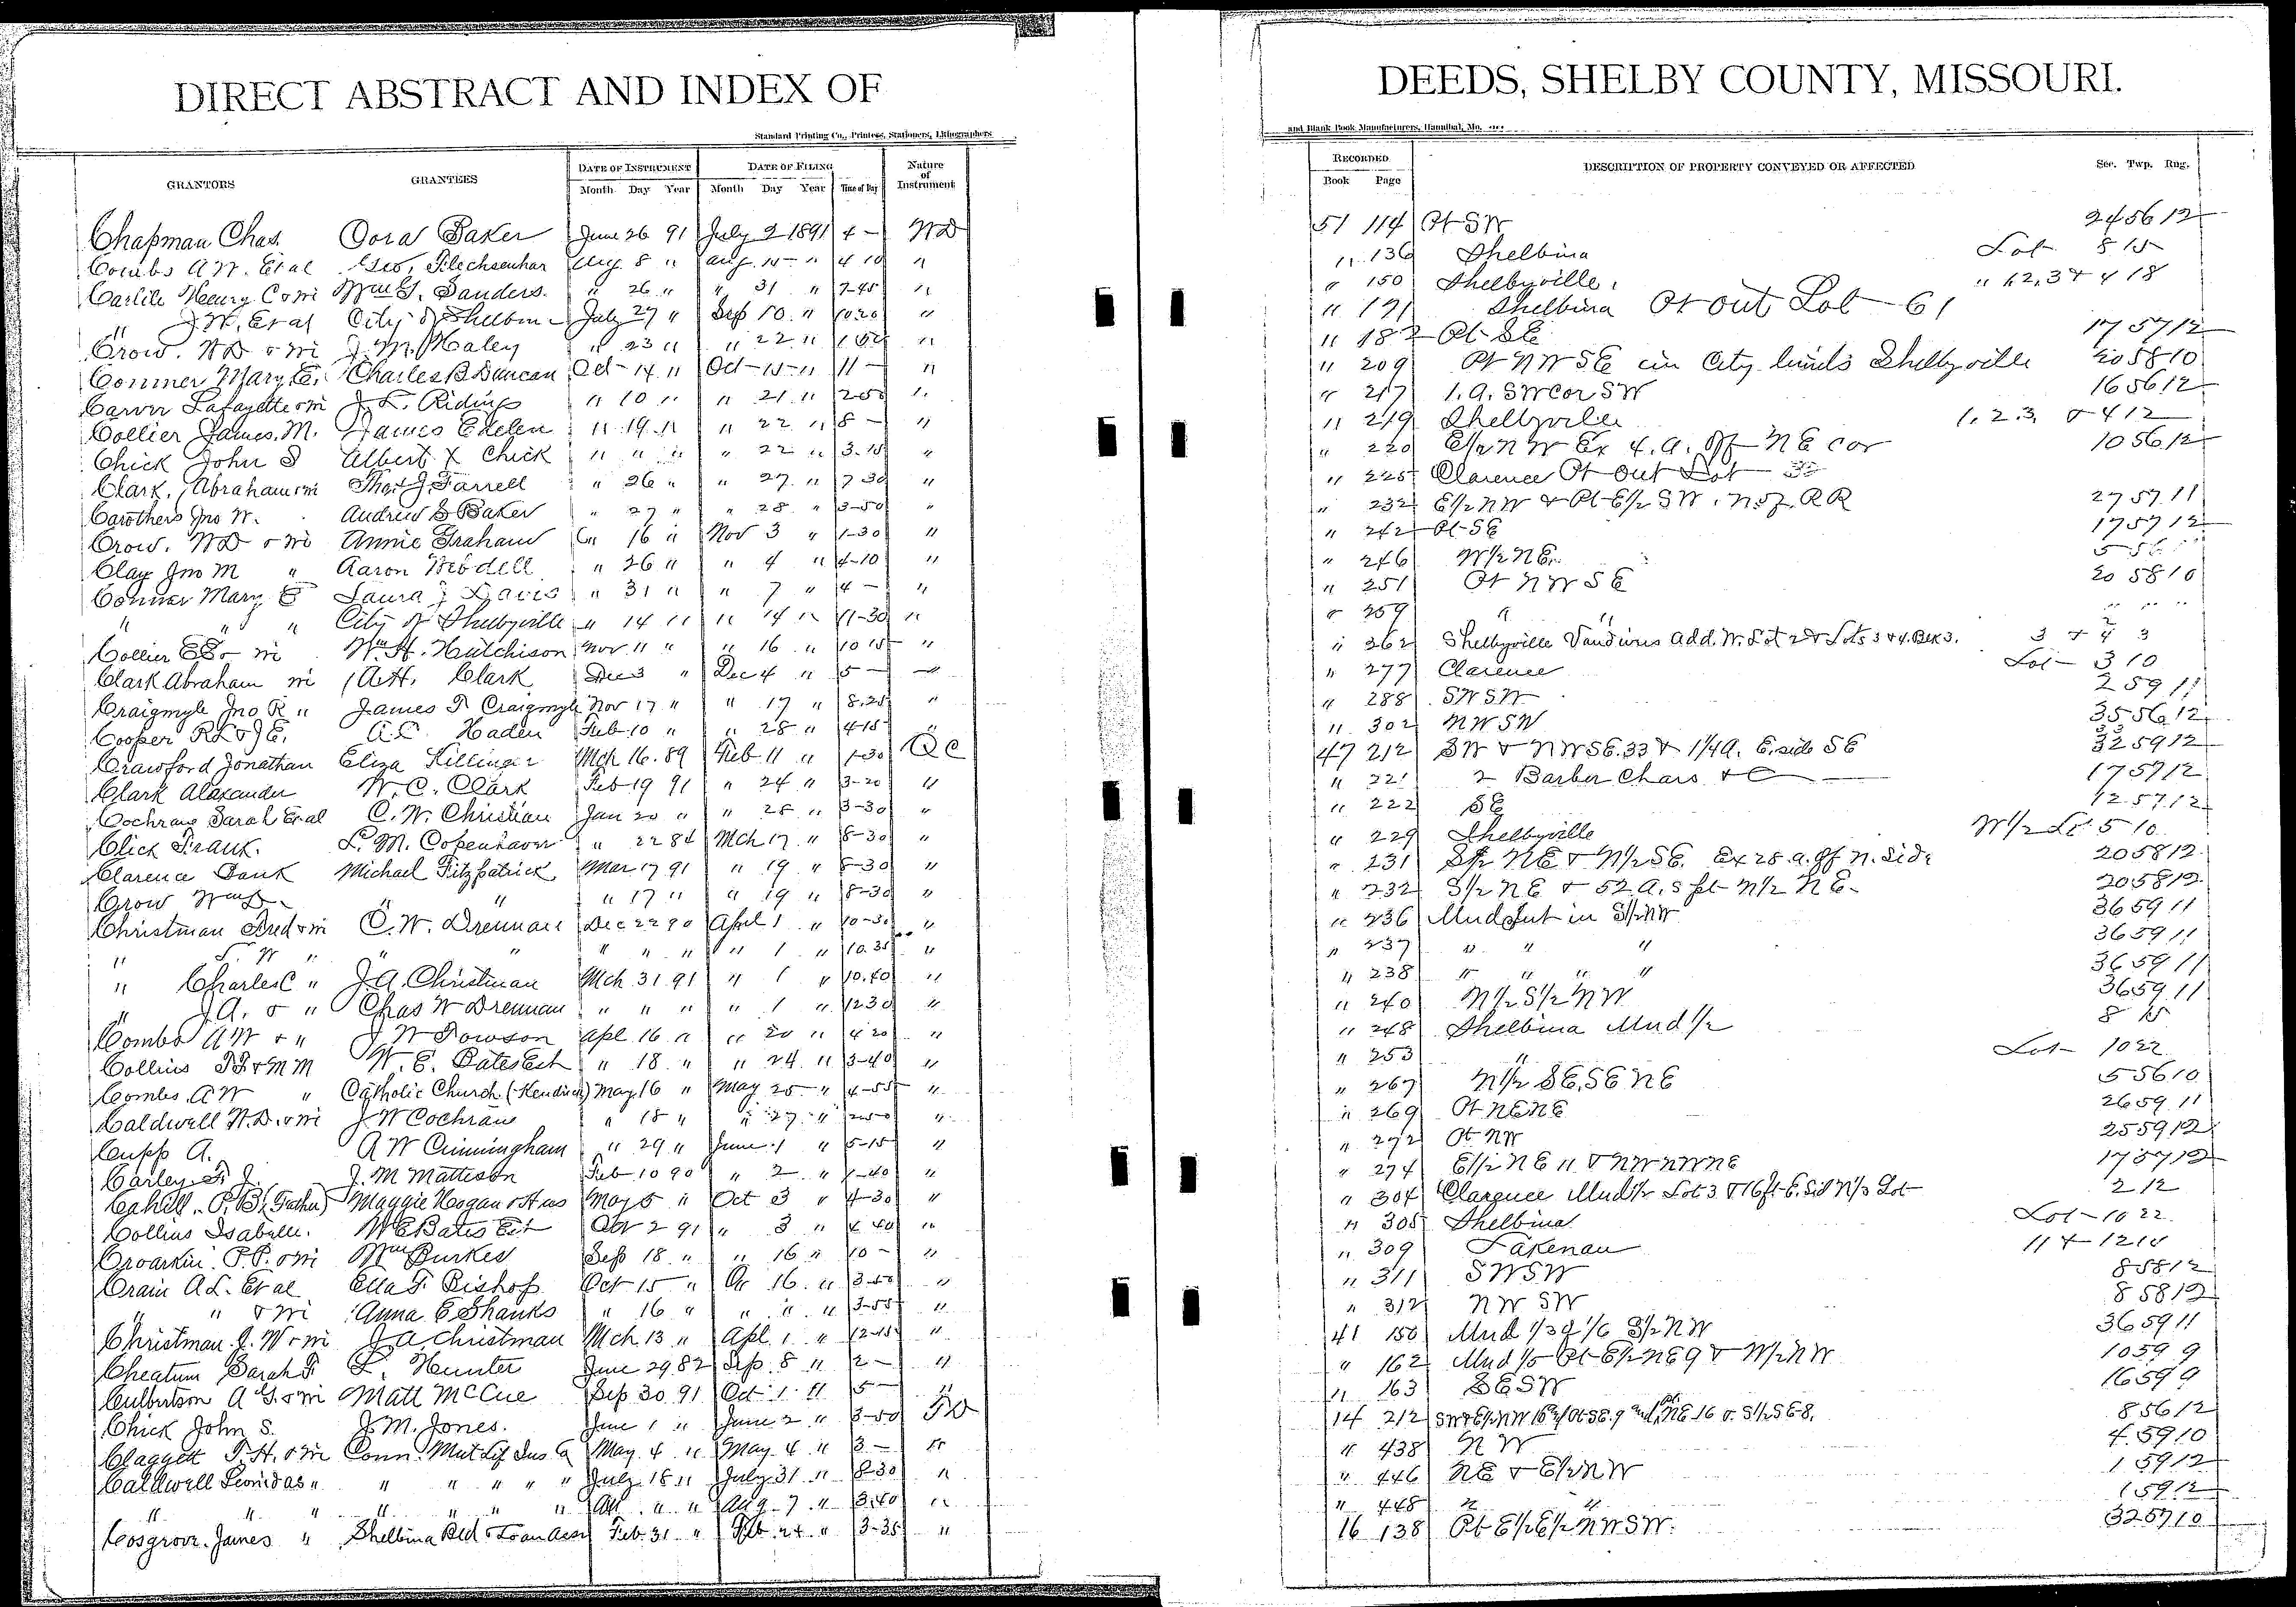 DIRECT ABSTRACT AND INDEX OF
Standard Printing Co., Printers, Stationers, Lithographers
GRANTORS GRANTEES DATE OF INSTRUMENT DATE OF FILING Nature of Instrument
Month Day Year Month Day Year Time of Day
Chapman Chas. Cora Baker June 26 91 July 2 1891 4 — WD
Combs A.W. Et al Geo. Flechsenhar Aug. 8 " Aug. 15 " 4 10 "
Carlile Henry C & wi Wm G. Sanders. " 26 " " 31 " 7-45 "
" J.W. Et al City of Shelbina July 27 " Sep 10 " 10 20 "
Crow. WD & wi J. M. Haley " 23 " " 22 " "
Conner Mary E. Charles B Duncan Oct 14 " Oct 15 " 11 — "
Carver Lafayette & wi J. L. Ridings " 10 " " 21 " 2 50 "
Collier James. M. James Edelen " 19 " " 22 " 8 — "
Chick John S Albert X Chick " " " " 22 " 3.15 "
Clark, Abraham & wi Thos J. Farrell " 26 " " 27 " 7 30 "
Carothers Jno W. Andrew S Baker " 27 " " 28 " 3-50 "
Crow. WD & wi Annie Graham " 16 " Nov 3 " 1-30 "
Clay Jno M " Aaron " 26 " " 4 " 4-10 "
Conner Mary E Laura J Davis " 31 " " 7 " 4 — "
" " " City of Shelbyville " 14 " " 14 " 11-30 "
Collier & wi Wm. H. Hutchison Nov. 11 " " 16 " 10 15 "
Clark Abraham wi A.H. Clark Dec 3 " Dec 4 " 5 — "
Craigmyle Jno R " James T Craigmyle Nov 17 " " 17 " 8.25 "
Cooper R L & J E. A.C. Haden Feb 10 " " 28 " 4-15 "
Crawford Jonathan Eliza Killinger Mch 16. 89 Feb 11 " 1-30 QC
Clark Alexander W. C. Clark Feb 19 91 " 24 " 3-20 "
Cochran Sarah Et al C. W. Christian Jan 20 " " 25 " 3-30 "
Click Frank. L. M. Copenhaver " 22 84 Mch 17 " 8-30 "
Clarence Bank Michael Fitzpatrick Mar 17 91 " 19 " 8-30 "
Crow Wm D. " " 17 " " 19 " 8-30 "
Christman Fred & wi C. W. Drennan Dec 22 90 April 1 " 10-30 "
" " " " " " " " 1 " 10.35 "
" Charles C " J.A. Christman Mch 31 91 " 1 " 10.40 "
" J.A. & " Chas W Drennan " " " " 1 " 12 30 "
Combs A W & " J W Towson Apl 16 " " 20 " 4 20 "
Collins & M M W. E. Bates Est " 18 " " 24 " 3-40 "
Combs A W " Catholic Church (Kendrick) May 16 " May 25 " 4-55 "
Caldwell W.D. & wi J W Cochran " 18 " " 27 " 2 50 "
Cupp A. A W Cunningham " 29 " June 1 " 5-15 "
Carley F. J. J. M Mattison Feb 10 90 " 2 " 1-40 "
Cahill. P. B. (Father) Maggie Hogan & Hus May 5 " Oct 3 " 4-30 "
Collins Isabelle. W E Bates Est 2 91 " 3 " 4 40 "
Croarkin P.P. & wi Wm Burkes Sep 18 " " 16 " 10 — "
Crain A L. Et al Ella F. Bishop Oct 15 " 16 " "
" " & wi Anna E Shanks " 16 " " " " 3-55 "
Christman J. W & wi J A Christman Mch 13 " Apl 1 " 12-15 "
Cheatum Sarah F L. Hunter June 29 82 Sep. 8 " 2 — "
Culbertson A G. & wi Matt McCue Sep 30 91 Oct 1 " 5 — "
Chick John S. J. M. Jones. June 1 " June 2 " 3-50 TD
Claggett T. H. & wi Conn. Mut Lif Ins Co May. 4 " May. 4 " 3 — "
Caldwell Leonidas " " " " " " July 18 " July 31 " 8-30 "
" " " " " " " " " Aug 7 " 3.40 "
Cosgrove. James " Shelbina Bld & Loan Assn Feb 31 " Feb. 24 " 3-35 "
DEEDS, SHELBY COUNTY, MISSOURI.
and Blank Book Manufacturers, Hannibal, Mo.
RECORDED DESCRIPTION OF PROPERTY CONVEYED OR AFFECTED Sec. Twp. Rng.
Book Page
51 114 Pt SW 24 56 12
" 136 Shelbina Lot 8 15
" 150 Shelbyville " 1 2, 3 & 4 18
" 171 Shelbina Pt out Lot 61
" 182 Pt SE 17 57 12
" 209 Pt NW SE in City limits Shelbyville 20 58 10
" 217 1. a. SW Cor SW 16 56 12
" 219 Shelbyville 1. 2. 3. & 4 12
" 220 E1/2 NW Ex 4. a. off NE cor 10 56 12
" 225 Clarence Pt out Lot
" 232 E1/2 NW & Pt E1/2 SW. N of RR 27 57 11
" 242 Pt SE 17 57 12
" 246 W1/2 NE. 5 56
" 251 Pt NW SE 20 58 10
" 259 " " " " "
" 262 Shelbyville Add. W. Lot 2 & Lots 3 & 4. Blk 3. 3 & 4 3
" 277 Clarence Lot 3 10
" 288 SW SW 2 59 11
" 302 NW SW 35 56 12
47 212 SW & NW SE. 33 & 1 1/4 a. E. side SE 32 59 12
" 221 2 Barber Chairs &c 17 57 12
" 222 SE 12 57 12
" 229 Shelbyville W 1/2 Lt 5 10
" 231 S1/2 NE & N1/2 SE. Ex 28 a. off N. side 20 58 12
" 232 S1/2 NE & 52 A. S pt N1/2 NE 20 58 12
" 236 Und Int in S1/2 NW 36 59 11
" 237 " " " 36 59 11
" 238 " " " " 36 59 11
" 240 N1/2 S1/2 NW 36 59 11
" 248 Shelbina Und 1/2 8 15
" 253 " Lot 10 22
" 267 N1/2 SE, SE NE 5 56 10
" 269 Pt NE NE 26 59 11
" 272 Pt NW 25 59 12
" 274 E1/2 NE " & NW NW NE 17 57 12
" 304 Clarence Und 1/2 Lot 3 & 16 ft E. Sid N1/3 Lot 2 12
" 305 Shelbina Lot 10 22
" 309 Lakenan 11 & 12 14
" 311 SW SW 8 58 12
" 312 NW SW 8 58 12
41 150 Und 1/3 of 1/6 S1/2 NW 36 59 11
" 162 Und 1/5 Pt E1/2 NE 9 & W1/2 NW 10 59 9
" 163 SE SW 16 59 9
14 212 SW & E1/2 NW Pt SE. 9 and NE 16 & S1/2 SE 8. 8 56 12
" 438 NW 4 59 10
" 446 NE & E1/2 NW 1 59 12
" 448 " " 1 59 12
16 138 Pt E1/2 E1/2 NW SW. 32 57 10